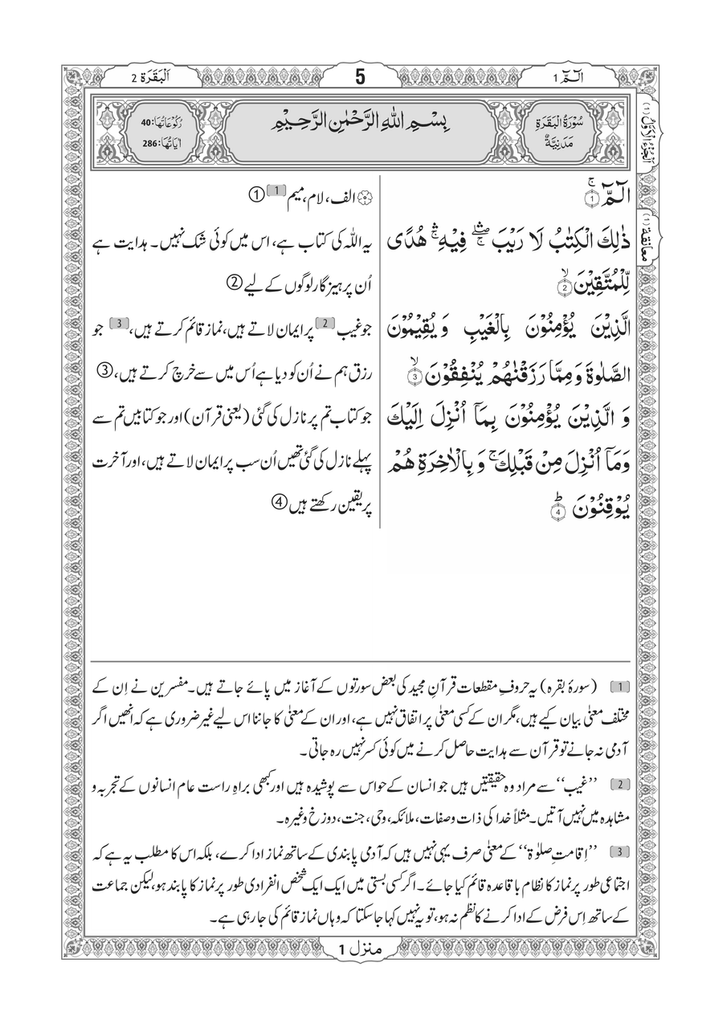 الٓمّٓ 1
5
اَلْبَقَرَة 2
سُوْرَةُ الْبَقَرَةِ
مَدَنِيَّةٌ
بِسْمِ اللّٰهِ الرَّحْمٰنِ الرَّحِيْمِ
رُكُوْعَاتُهَا: 40
اٰيَاتُهَا: 286
اَلْجُزْءُ الْاَوَّلُ (1)
معانقة (1)
الٓمّٓ ۚ ﴿1﴾
ذٰلِكَ الْكِتٰبُ لَا رَيْبَ ۛۖ فِيْهِ ۛۚ هُدًى
لِّلْمُتَّقِيْنَ ۙ ﴿2﴾
الَّذِيْنَ يُؤْمِنُوْنَ بِالْغَيْبِ وَ يُقِيْمُوْنَ
الصَّلٰوةَ وَ مِمَّا رَزَقْنٰهُمْ يُنْفِقُوْنَ ۙ ﴿3﴾
وَ الَّذِيْنَ يُؤْمِنُوْنَ بِمَاۤ اُنْزِلَ اِلَيْكَ
وَ مَاۤ اُنْزِلَ مِنْ قَبْلِكَ ۚ وَ بِالْاٰخِرَةِ هُمْ
يُوْقِنُوْنَ ؕ ﴿4﴾
الف، لام، میم [1] ①
یہ اللہ کی کتاب ہے، اس میں کوئی شک نہیں۔ ہدایت ہے
اُن پرہیزگار لوگوں کے لیے ②
جو غیب [2] پر ایمان لاتے ہیں، نماز قائم کرتے ہیں، [3] جو
رزق ہم نے اُن کو دیا ہے اُس میں سے خرچ کرتے ہیں، ③
جو کتاب تم پر نازل کی گئی (یعنی قرآن) اور جو کتابیں تم سے
پہلے نازل کی گئی تھیں اُن سب پر ایمان لاتے ہیں، اور آخرت
پر یقین رکھتے ہیں ④
[1] (سورۂ بقرہ) یہ حروفِ مقطعات قرآنِ مجید کی بعض سورتوں کے آغاز میں پائے جاتے ہیں۔ مفسرین نے اِن کے
مختلف معنٰی بیان کیے ہیں، مگر ان کے کسی معنٰی پر اتفاق نہیں ہے، اور ان کے معنٰی کا جاننا اس لیے غیر ضروری ہے کہ انھیں اگر
آدمی نہ جانے تو قرآن سے ہدایت حاصل کرنے میں کوئی کسر نہیں رہ جاتی۔
[2] ’’غیب‘‘ سے مراد وہ حقیقتیں ہیں جو انسان کے حواس سے پوشیدہ ہیں اور کبھی براہِ راست عام انسانوں کے تجربہ و
مشاہدہ میں نہیں آتیں۔ مثلاً خدا کی ذات و صفات، ملائکہ، وحی، جنت، دوزخ وغیرہ۔
[3] ’’اِقامتِ صلوٰۃ‘‘ کے معنٰی صرف یہی نہیں ہیں کہ آدمی پابندی کے ساتھ نماز ادا کرے، بلکہ اس کا مطلب یہ ہے کہ
اجتماعی طور پر نماز کا نظام باقاعدہ قائم کیا جائے۔ اگر کسی بستی میں ایک ایک شخص انفرادی طور پر نماز کا پابند ہو، لیکن جماعت
کے ساتھ اِس فرض کے ادا کرنے کا نظم نہ ہو، تو یہ نہیں کہا جا سکتا کہ وہاں نماز قائم کی جا رہی ہے۔
منزل 1